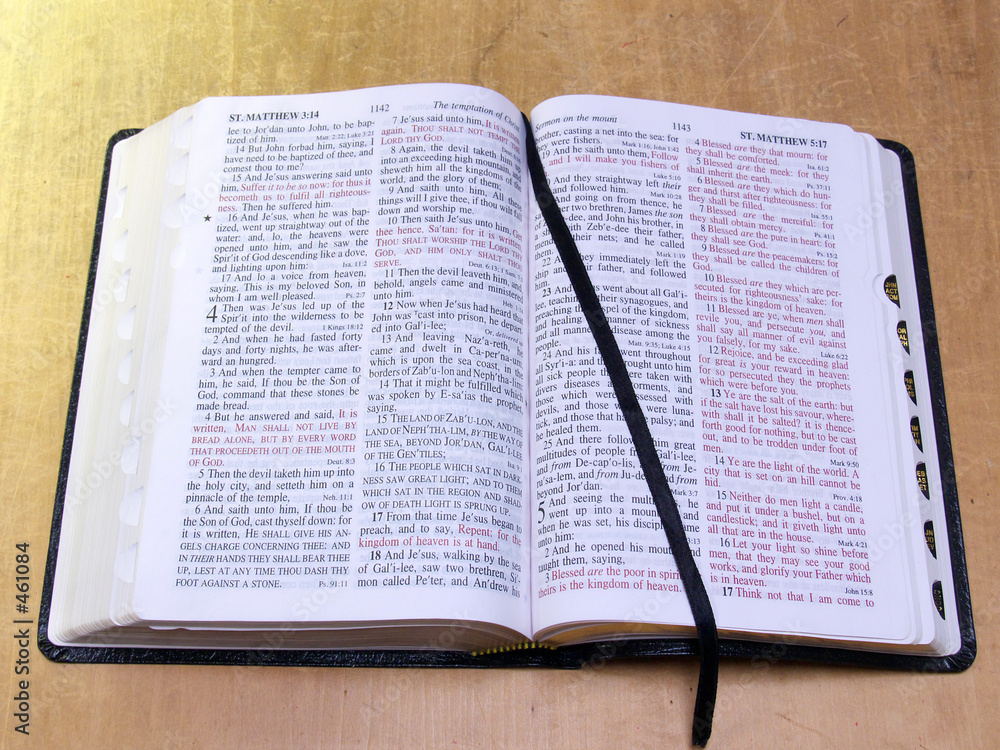 ST. MATTHEW 3:14
1142
The temptation of
lee to Jor′dan unto John, to be bap-
tized of him. Matt. 2:22; Luke 3:21
14 But John forbad him, saying, I
have need to be baptized of thee, and
comest thou to me?
15 And Je′sus answering said unto
him, Suffer it to be so now: for thus it
becometh us to fulfil all righteous-
ness. Then he suffered him.
★ 16 And Je′sus, when he was bap-
tized, went up straightway out of the
water: and, lo, the heavens were
opened unto him, and he saw the
Spir′it of God descending like a dove,
and lighting upon him: Isa. 11:2
17 And lo a voice from heaven,
saying, This is my beloved Son, in
whom I am well pleased. Ps. 2:7
4 Then was Je′sus led up of the
Spir′it into the wilderness to be
tempted of the devil. 1 Kings 18:12
2 And when he had fasted forty
days and forty nights, he was after-
ward an hungred.
3 And when the tempter came to
him, he said, If thou be the Son of
God, command that these stones be
made bread.
4 But he answered and said, It is
written, MAN SHALL NOT LIVE BY
BREAD ALONE, BUT BY EVERY WORD
THAT PROCEEDETH OUT OF THE MOUTH
OF GOD. Deut. 8:3
5 Then the devil taketh him up into
the holy city, and setteth him on a
pinnacle of the temple, Neh. 11:1
6 And saith unto him, If thou be
the Son of God, cast thyself down: for
it is written, HE SHALL GIVE HIS AN-
GELS CHARGE CONCERNING THEE: AND
IN THEIR HANDS THEY SHALL BEAR THEE
UP, LEST AT ANY TIME THOU DASH THY
FOOT AGAINST A STONE. Ps. 91:11
7 Je′sus said unto him, It is
again, THOU SHALT NOT TEMPT
LORD THY GOD.
8 Again, the devil taketh him up
into an exceeding high mountain, and
sheweth him all the kingdoms of the
world, and the glory of them;
9 And saith unto him, All these
things will I give thee, if thou wilt fall
down and worship me.
10 Then saith Je′sus unto him, Get
thee hence, Sa′tan: for it is written,
THOU SHALT WORSHIP THE LORD THY
GOD, AND HIM ONLY SHALT THOU
SERVE. Deut. 6:13;
11 Then the devil leaveth him, and,
behold, angels came and ministered
unto him.
12 Now when Je′sus had heard that
John was cast into prison, he depart-
ed into Gal′i-lee;
13 And leaving Naz′a-reth, he
came and dwelt in Ca-per′na-um,
which is upon the sea coast, in the
borders of Zab′u-lon and Neph′tha-lim:
14 That it might be fulfilled which
was spoken by E-sa′ias the prophet,
saying,
15 THE LAND OF ZAB′U-LON, AND THE
LAND OF NEPH′THA-LIM, BY THE WAY OF
THE SEA, BEYOND JOR′DAN, GAL′I-LEE
OF THE GEN′TILES;
16 THE PEOPLE WHICH SAT IN DARK-
NESS SAW GREAT LIGHT; AND TO THEM
WHICH SAT IN THE REGION AND SHAD-
OW OF DEATH LIGHT IS SPRUNG UP.
17 From that time Je′sus began to
preach, and to say, Repent: for the
kingdom of heaven is at hand.
18 And Je′sus, walking by the sea
of Gal′i-lee, saw two brethren, Si′-
mon called Pe′ter, and An′drew his
Sermon on the mount
1143
ST. MATTHEW 5:17
brother, casting a net into the sea: for
they were fishers. Mark 1:16, John 1:42
19 And he saith unto them, Follow
and I will make you fishers of
Luke 5:10
And they straightway left their
and followed him. Mark 10:28
And going on from thence, he
other two brethren, James the son
of -dee, and John his brother, in
with Zeb′e-dee their father,
mending their nets; and he called
them. Mark 1:19
22 And they immediately left the
ship and their father, and followed
him.
23 And went about all Gal′i-
lee, teaching their synagogues, and
preaching the gospel of the kingdom,
and healing manner of sickness
and all manner disease among the
people. Matt. 9:35; Luke 4:15
24 And his fame went throughout
all Syr′i-a: and they brought unto him
all sick people that were taken with
divers diseases and torments, and
those which were possessed with
devils, and those were luna-
tick, and those that had palsy; and
he healed them.
25 And there followed him great
multitudes of people from Gal′i-lee,
and from De-cap′o-lis, and from Je-
ru′sa-lem, and from Ju-de and from
beyond Jor′dan. Mark 3:7
5 And seeing the multitudes, he
went up into a mountain: and
when he was set, his disciples came
unto him:
2 And he opened his mouth, and
taught them, saying,
3 Blessed are the poor in spirit:
theirs is the kingdom of heaven.
4 Blessed are they that mourn: for
they shall be comforted. Isa. 61:2
5 Blessed are the meek: for they
shall inherit the earth. Ps. 37:11
6 Blessed are they which do hun-
ger and thirst after righteousness: for
they shall be filled. Isa. 55:1
7 Blessed are the merciful: for
they shall obtain mercy. Ps. 41:1
8 Blessed are the pure in heart: for
they shall see God. Ps. 15:2
9 Blessed are the peacemakers: for
they shall be called the children of
God.
10 Blessed are they which are per-
secuted for righteousness' sake: for
theirs is the kingdom of heaven.
11 Blessed are ye, when men shall
revile you, and persecute you, and
shall say all manner of evil against
you falsely, for my sake. Luke 6:22
12 Rejoice, and be exceeding glad:
for great is your reward in heaven:
for so persecuted they the prophets
which were before you.
13 Ye are the salt of the earth: but
if the salt have lost his savour, where-
with shall it be salted? it is thence-
forth good for nothing, but to be cast
out, and to be trodden under foot of
men. Mark 9:50
14 Ye are the light of the world. A
city that is set on an hill cannot be
hid. Prov. 4:18
15 Neither do men light a candle,
and put it under a bushel, but on a
candlestick; and it giveth light unto
all that are in the house. Mark 4:21
16 Let your light so shine before
men, that they may see your good
works, and glorify your Father which
is in heaven. John 15:8
17 Think not that I am come to
JHN
ACT
ROM
Adobe Stock | #461084